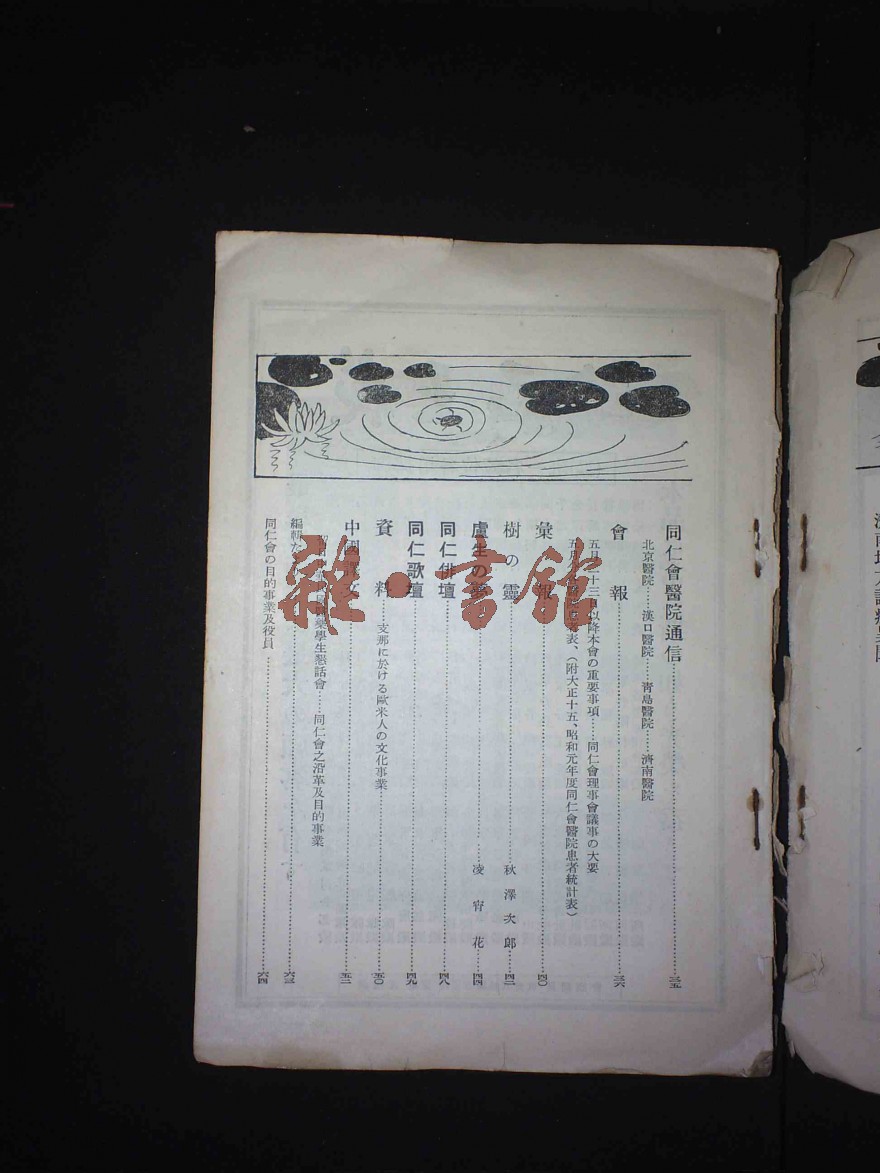 同仁會醫院通信……三五
北京醫院……漢口醫院……青島醫院……濟南醫院
會報……三六
五月二十三日以降本會の重要事項……同仁會理事會議事の大要
彙報……四〇
五月 表、(附大正十五、昭和元年度同仁會醫院患者統計表)
樹の靈……秋澤次郎……四二
盧生の ……凌宵花……四四
同仁俳壇……四八
同仁歌壇……四九
資料……支那に於ける歐米人の文化事業……五〇
中國 文……五二
藥學生懇話會……同仁會之沿革及目的事業
編輯 ……六三
同仁會の目的事業及役員……六四
雜·書館